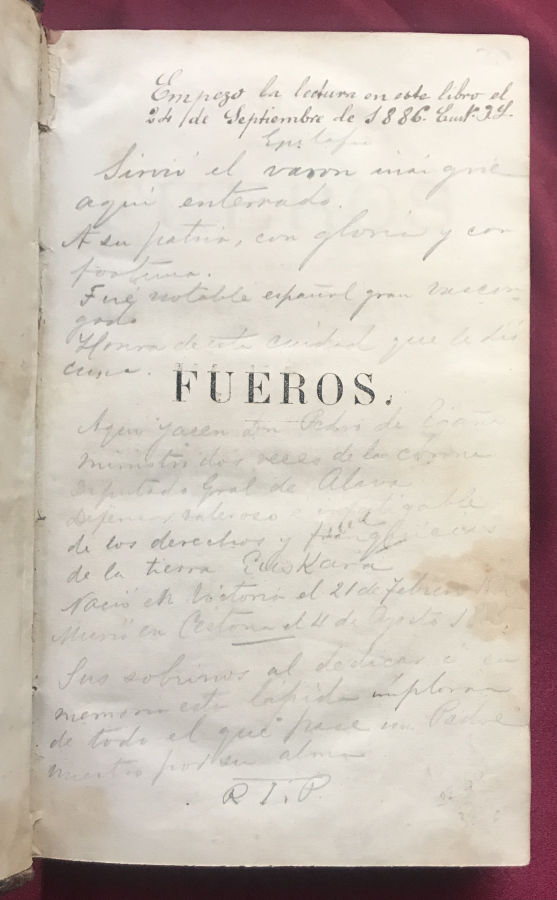 Empezo la lectura en este libro el
24/de Septiembre de 1886.
Epitafio
Sirvió el varon insigne
aqui enterrado.
A su patria, con gloria y con
fortuna.
Fué notable español gran vascon-
gado
Honra de esta cuidad que le dió
cuna.
FUEROS.
Aqui yacen Don Pedro de Egaña
Ministro dos veces de la corona
Diputado Gral de Alava
Defensor valeroso e infatigable
de los derechos y franquicias
de la tierra Euskara
Nació en Victoria el 21 de Febrero
Murió en Cestona el 4 de Agosto
Sus sobrinos al dedicar á su
memoria esta lapida imploran
de todo el que pase un Padre
nuestro por su alma
R I. P.